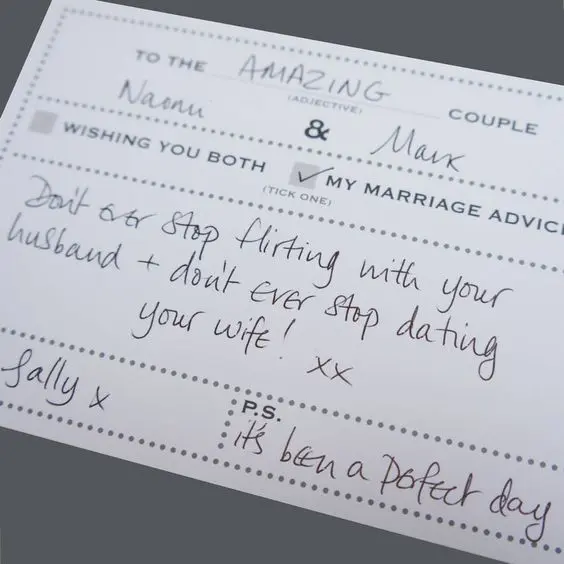 TO THE AMAZING COUPLE
(ADJECTIVE)
Naomi & Mark
WISHING YOU BOTH ✓ MY MARRIAGE ADVIC
(TICK ONE)
Don't ever stop flirting with your
husband + don't ever stop dating
your wife! xx
Sally x
P.S.
it's been a perfect day